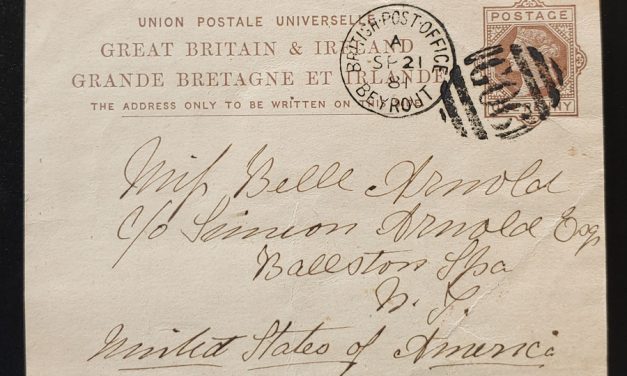 UNION POSTALE UNIVERSELLE
GREAT BRITAIN & IRELAND
GRANDE BRETAGNE ET IRLANDE
THE ADDRESS ONLY TO BE WRITTEN ON
BRITISH·POST·OFFICE
A
SP 21
81
BEYROUT
POSTAGE
PENNY
Miss Belle Arnold
c/o Simeon Arnold Esq
Ballston Spa
N. Y.
United States of America